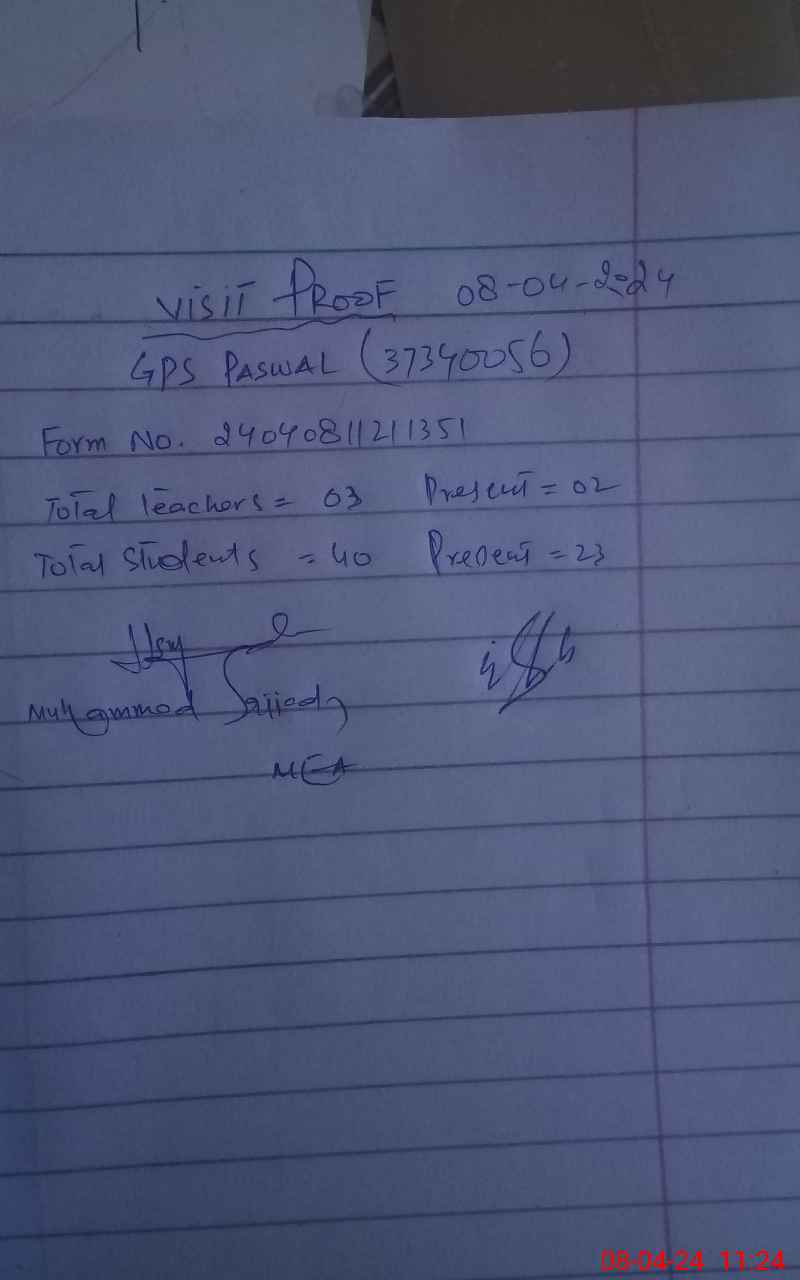 VISIT PROOF 08-04-2024
GPS PASWAL (37340056)
Form No. 24040811211351
Total Teachers = 03 Present = 02
Total Students = 40 Present = 23
Muhammad Sajjad
MEA
08-04-24 11:24